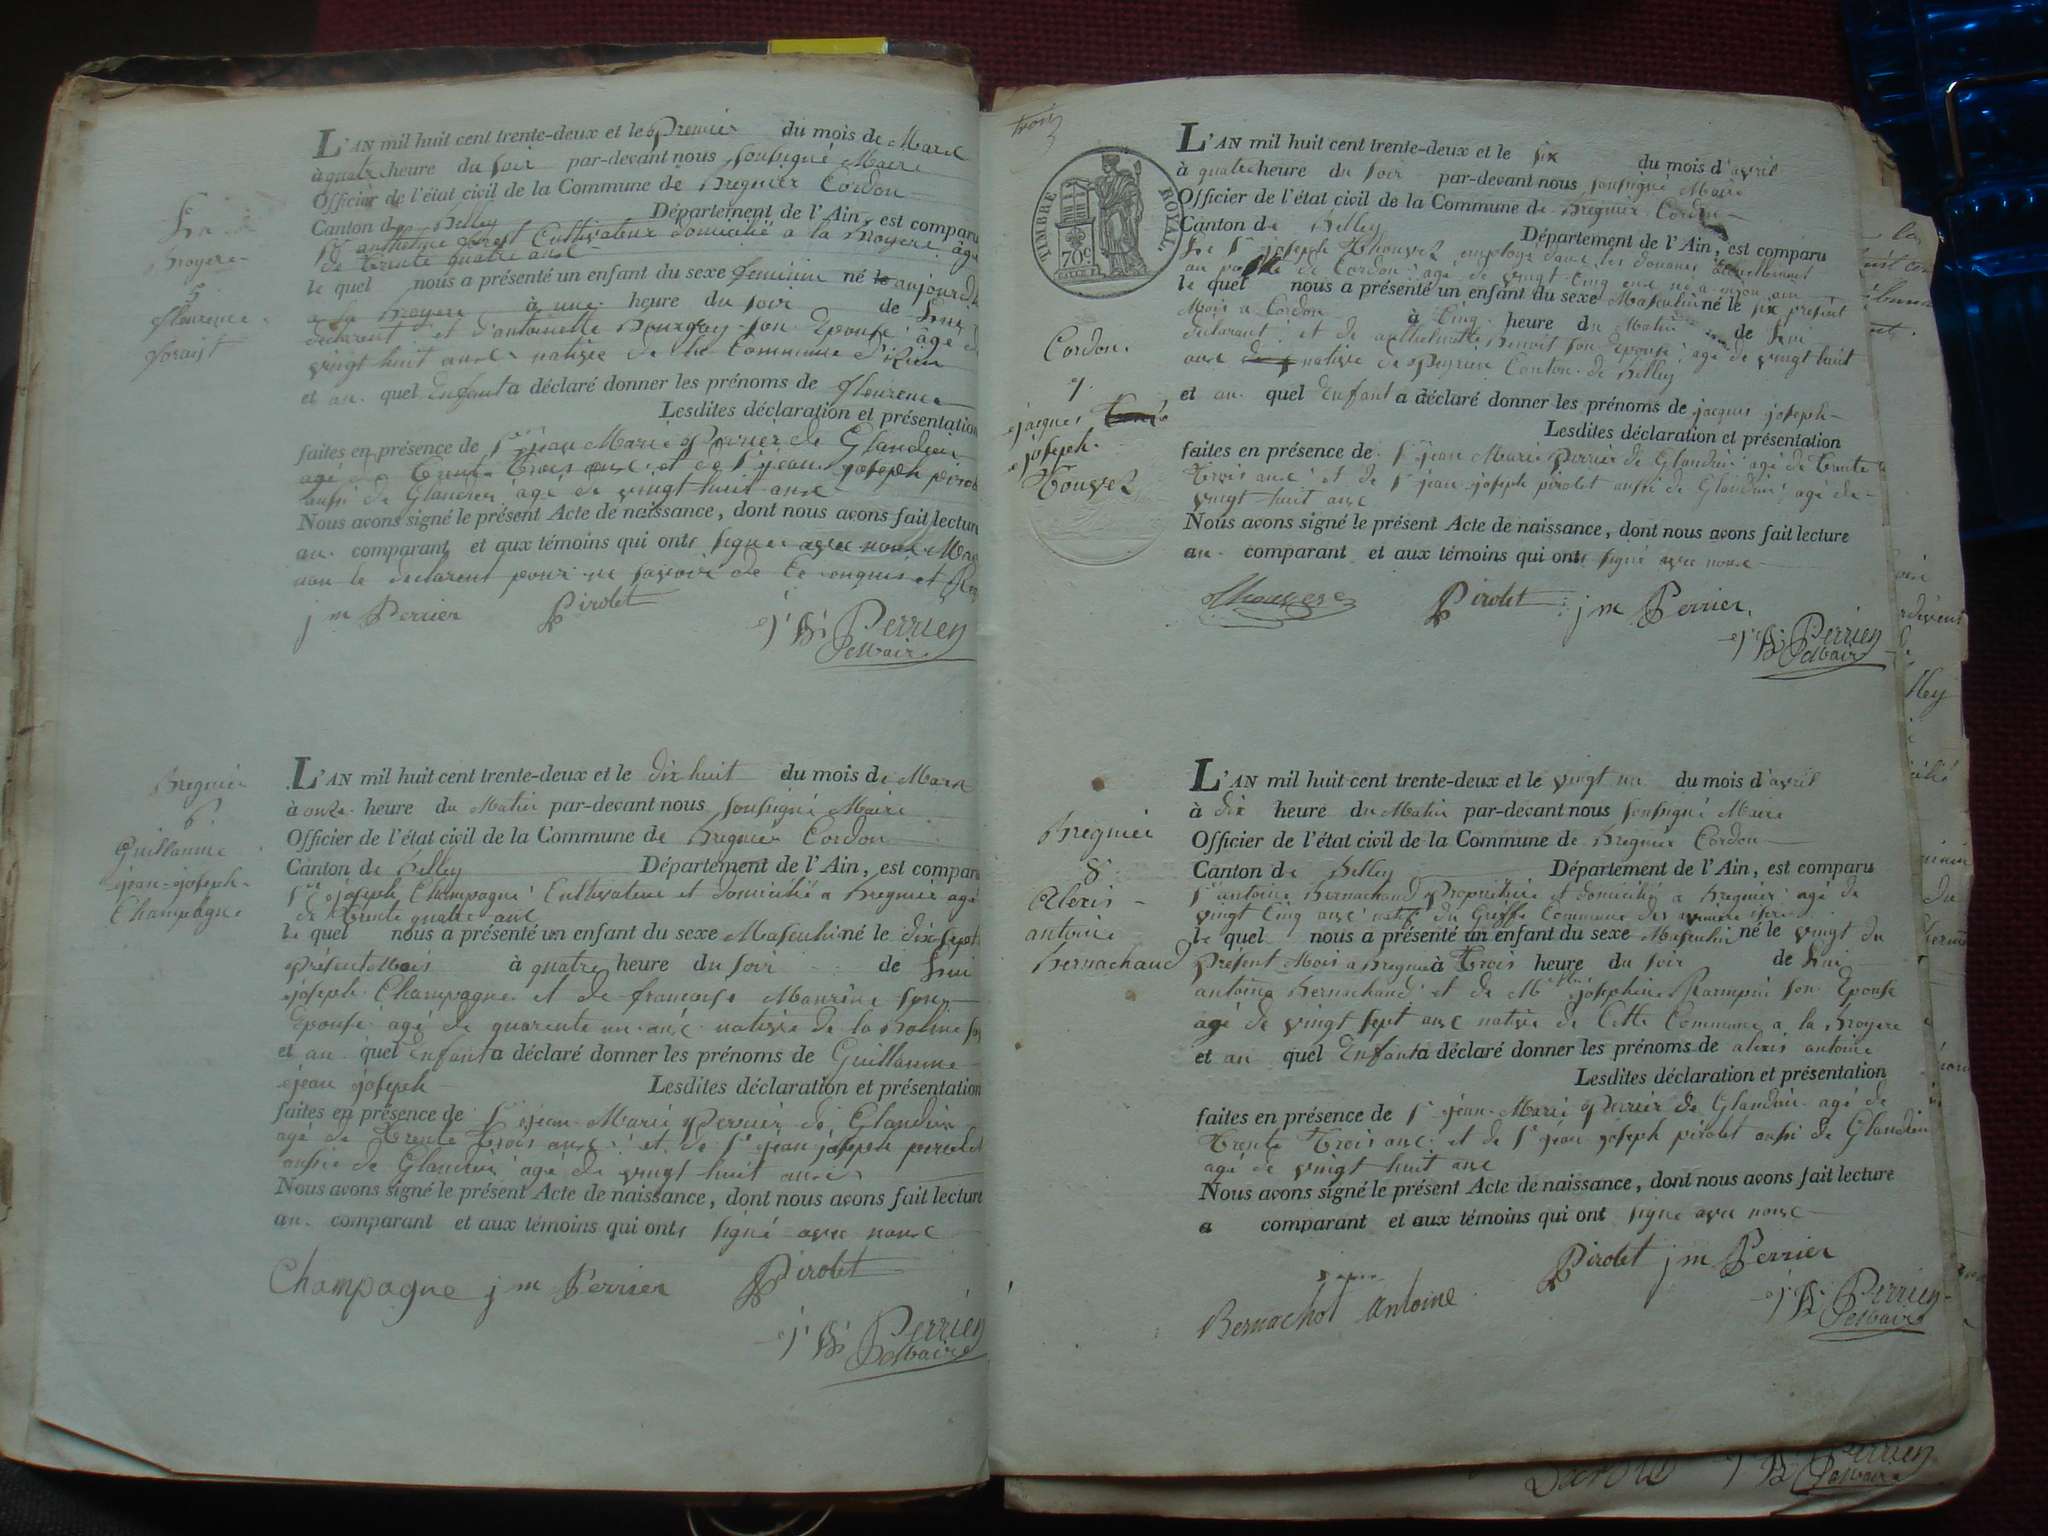 L'AN mil huit cent trente-deux et le Premier du mois de Mars
à quatre heure du soir par-devant nous soussigné Maire
Officier de l'état civil de la Commune de Bregnier Cordon
Canton de Belley Département de l'Ain, est comparu
Sr anthelme forest Cultivateur domicilié a la Broyere agé
de trente quatre ans
le quel nous a présenté un enfant du sexe feminin né le aujourd'h
a la Broyere à une heure du soir de Lui
declarant et d'antoinette Bourgey son Epouse agé de
vingt huit ans native de la Commune d'
et au quel Enfant a déclaré donner les prénoms de flourence
Lesdites déclaration et présentation
faites en présence de Sr jean Marie Perrier de Glandieu
agé de trente trois ans et de Sr jean joseph pirolet
aussi de Glandieu agé de vingt huit ans
Nous avons signé le présent Acte de naissance, dont nous avons fait lecture
au comparant et aux témoins qui ont signé avec nous Mais
non le declarent pour ne savoir de ce enquis et Req
j m Perrier Pirolet
Perrier
Maire
La
Broyere
5
flourence
foraist
L'AN mil huit cent trente-deux et le dix huit du mois de Mars
à onze heure du Matin par-devant nous soussigné Maire
Officier de l'état civil de la Commune de Bregnier Cordon
Canton de Belley Département de l'Ain, est comparu
Sr joseph Champagne Cultivateur et domicilié a Bregnier agé
de trente quatre ans
le quel nous a présenté un enfant du sexe Masculin né le dix sept
présent Mois à quatre heure du soir de Lui
joseph Champagne et de francoise Maurine son
Epouse agé de quarente un ans native de la Balme
et au quel Enfant a déclaré donner les prénoms de Guillaume
jean joseph Lesdites déclaration et présentation
faites en présence de Sr jean Marie Perrier de Glandieu
agé de trente trois ans et de Sr jean joseph pirolet
aussi de Glandieu agé de vingt huit ans
Nous avons signé le présent Acte de naissance, dont nous avons fait lecture
au comparant et aux témoins qui ont signé avec nous
Champagne j m Perrier Pirolet
Perrier
Maire
Bregnier
6
Guillaume
jean-joseph
Champagne
trois
TIMBRE ROYAL
70c
L'AN mil huit cent trente-deux et le six du mois d'avril
à quatre heure du soir par-devant nous soussigné Maire
Officier de l'état civil de la Commune de Bregnier Cordon
Canton de Belley Département de l'Ain, est comparu
Le Sr joseph Thouvez employé dans les douanes
au de Cordon agé de vingt cinq ans né a
le quel nous a présenté un enfant du sexe Masculin né le six présent
Mois a Cordon à Cinq heure du Matin de Lui
declarant et de anthelmette Benoit son Epouse agé de vingt huit
ans native de Peyrieu Canton de Belley
et au quel Enfant a déclaré donner les prénoms de jacques joseph
Lesdites déclaration et présentation
faites en présence de Sr jean Marie Perrier de Glandieu agé de trente
trois ans et de Sr jean joseph pirolet aussi de Glandieu agé de
vingt huit ans
Nous avons signé le présent Acte de naissance, dont nous avons fait lecture
au comparant et aux témoins qui ont signé avec nous
Pirolet j m Perrier
Perrier
Maire
Cordon
7
jacques
joseph
Touvez
L'AN mil huit cent trente-deux et le vingt un du mois d'avril
à dix heure du Matin par-devant nous soussigné Maire
Officier de l'état civil de la Commune de Bregnier Cordon
Canton de Belley Département de l'Ain, est comparu
Sr antoine Bernachaud Propriétaire et domicilié a Bregnier agé de
vingt Cinq ans natif du Commune des isere
le quel nous a présenté un enfant du sexe Masculin né le vingt du
Présent Mois a Bregnier à trois heure du soir de Lui
antoine Bernachaud et de josephine Rampin son Epouse
agé de vingt sept ans native de Cette Commune a la Broyere
et au quel Enfant a déclaré donner les prénoms de alexis antoine
Lesdites déclaration et présentation
faites en présence de Sr jean Marie Perrier de Glandieu agé de
trente trois ans et de Sr jean joseph pirolet aussi de Glandieu
agé de vingt huit ans
Nous avons signé le présent Acte de naissance, dont nous avons fait lecture
a comparant et aux témoins qui ont signé avec nous
Pirolet j m Perrier
Bernachot antoine
Perrier
Maire
Bregnier
8
Alexis
antoine
Bernachaud
Perrier
Maire